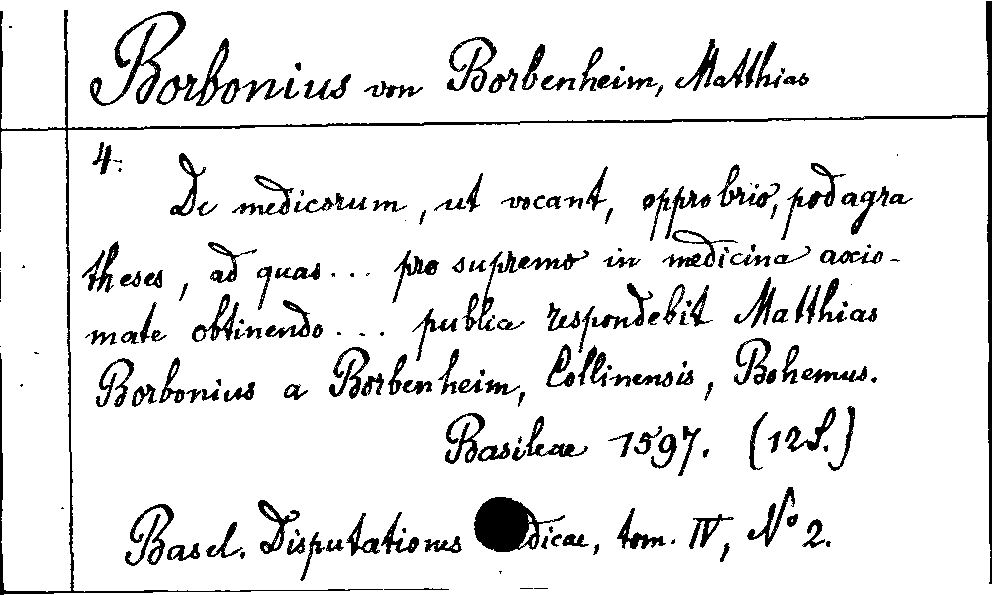 Borbonius von Borbenheim, Matthias
4.
De medicorum, ut vocant, opprobrio, podagra
theses, ad quas... pro supremo in medicina axio-
mate obtinendo... publice respondebit Matthias
Borbonius a Borbenheim, Collinensis, Bohemus.
Basileae 1597. (12 S.)
Basel. Disputationes dicae, tom. IV, No 2.